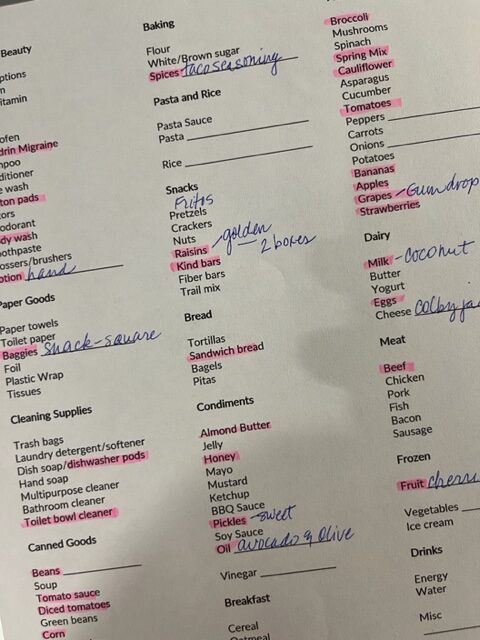 Beauty
ptions
n
itamin
ofen
drin Migraine
mpoo
ditioner
e wash
ton pads
ors
odorant
dy wash
oothpaste
ossers/brushers
otion hand
Paper Goods
Paper towels
Toilet paper
Baggies snack-square
Foil
Plastic Wrap
Tissues
Cleaning Supplies
Trash bags
Laundry detergent/softener
Dish soap/dishwasher pods
Hand soap
Multipurpose cleaner
Bathroom cleaner
Toilet bowl cleaner
Canned Goods
Beans
Soup
Tomato sauce
Diced tomatoes
Green beans
Corn
Baking
Flour
White/Brown sugar
Spices taco seasoning
Pasta and Rice
Pasta Sauce
Pasta
Rice
Snacks
Fritos
Pretzels
Crackers
Nuts
Raisins - golden
Kind bars - 2 boxes
Fiber bars
Trail mix
Bread
Tortillas
Sandwich bread
Bagels
Pitas
Condiments
Almond Butter
Jelly
Honey
Mayo
Mustard
Ketchup
BBQ Sauce
Pickles - sweet
Soy Sauce
Oil avocado & olive
Vinegar
Breakfast
Cereal
Oatmeal
Broccoli
Mushrooms
Spinach
Spring Mix
Cauliflower
Asparagus
Cucumber
Tomatoes
Peppers
Carrots
Onions
Potatoes
Bananas
Apples
Grapes - Gum drop
Strawberries
Dairy
Milk - coconut
Butter
Yogurt
Eggs
Cheese Colby ja
Meat
Beef
Chicken
Pork
Fish
Bacon
Sausage
Frozen
Fruit cherri
Vegetables
Ice cream
Drinks
Energy
Water
Misc